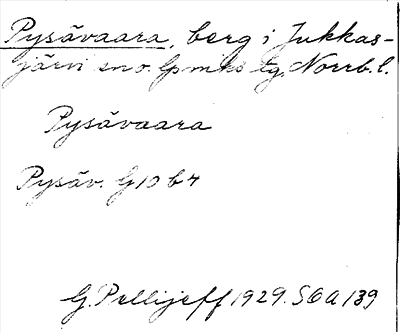 Pysävaara, berg i Jukkas-
järvi sno. Lpmks tg, Norrb. l.
Pysävaara
Pysäv. G 10 b 4
G. Pellijeff 1929. SOA 139